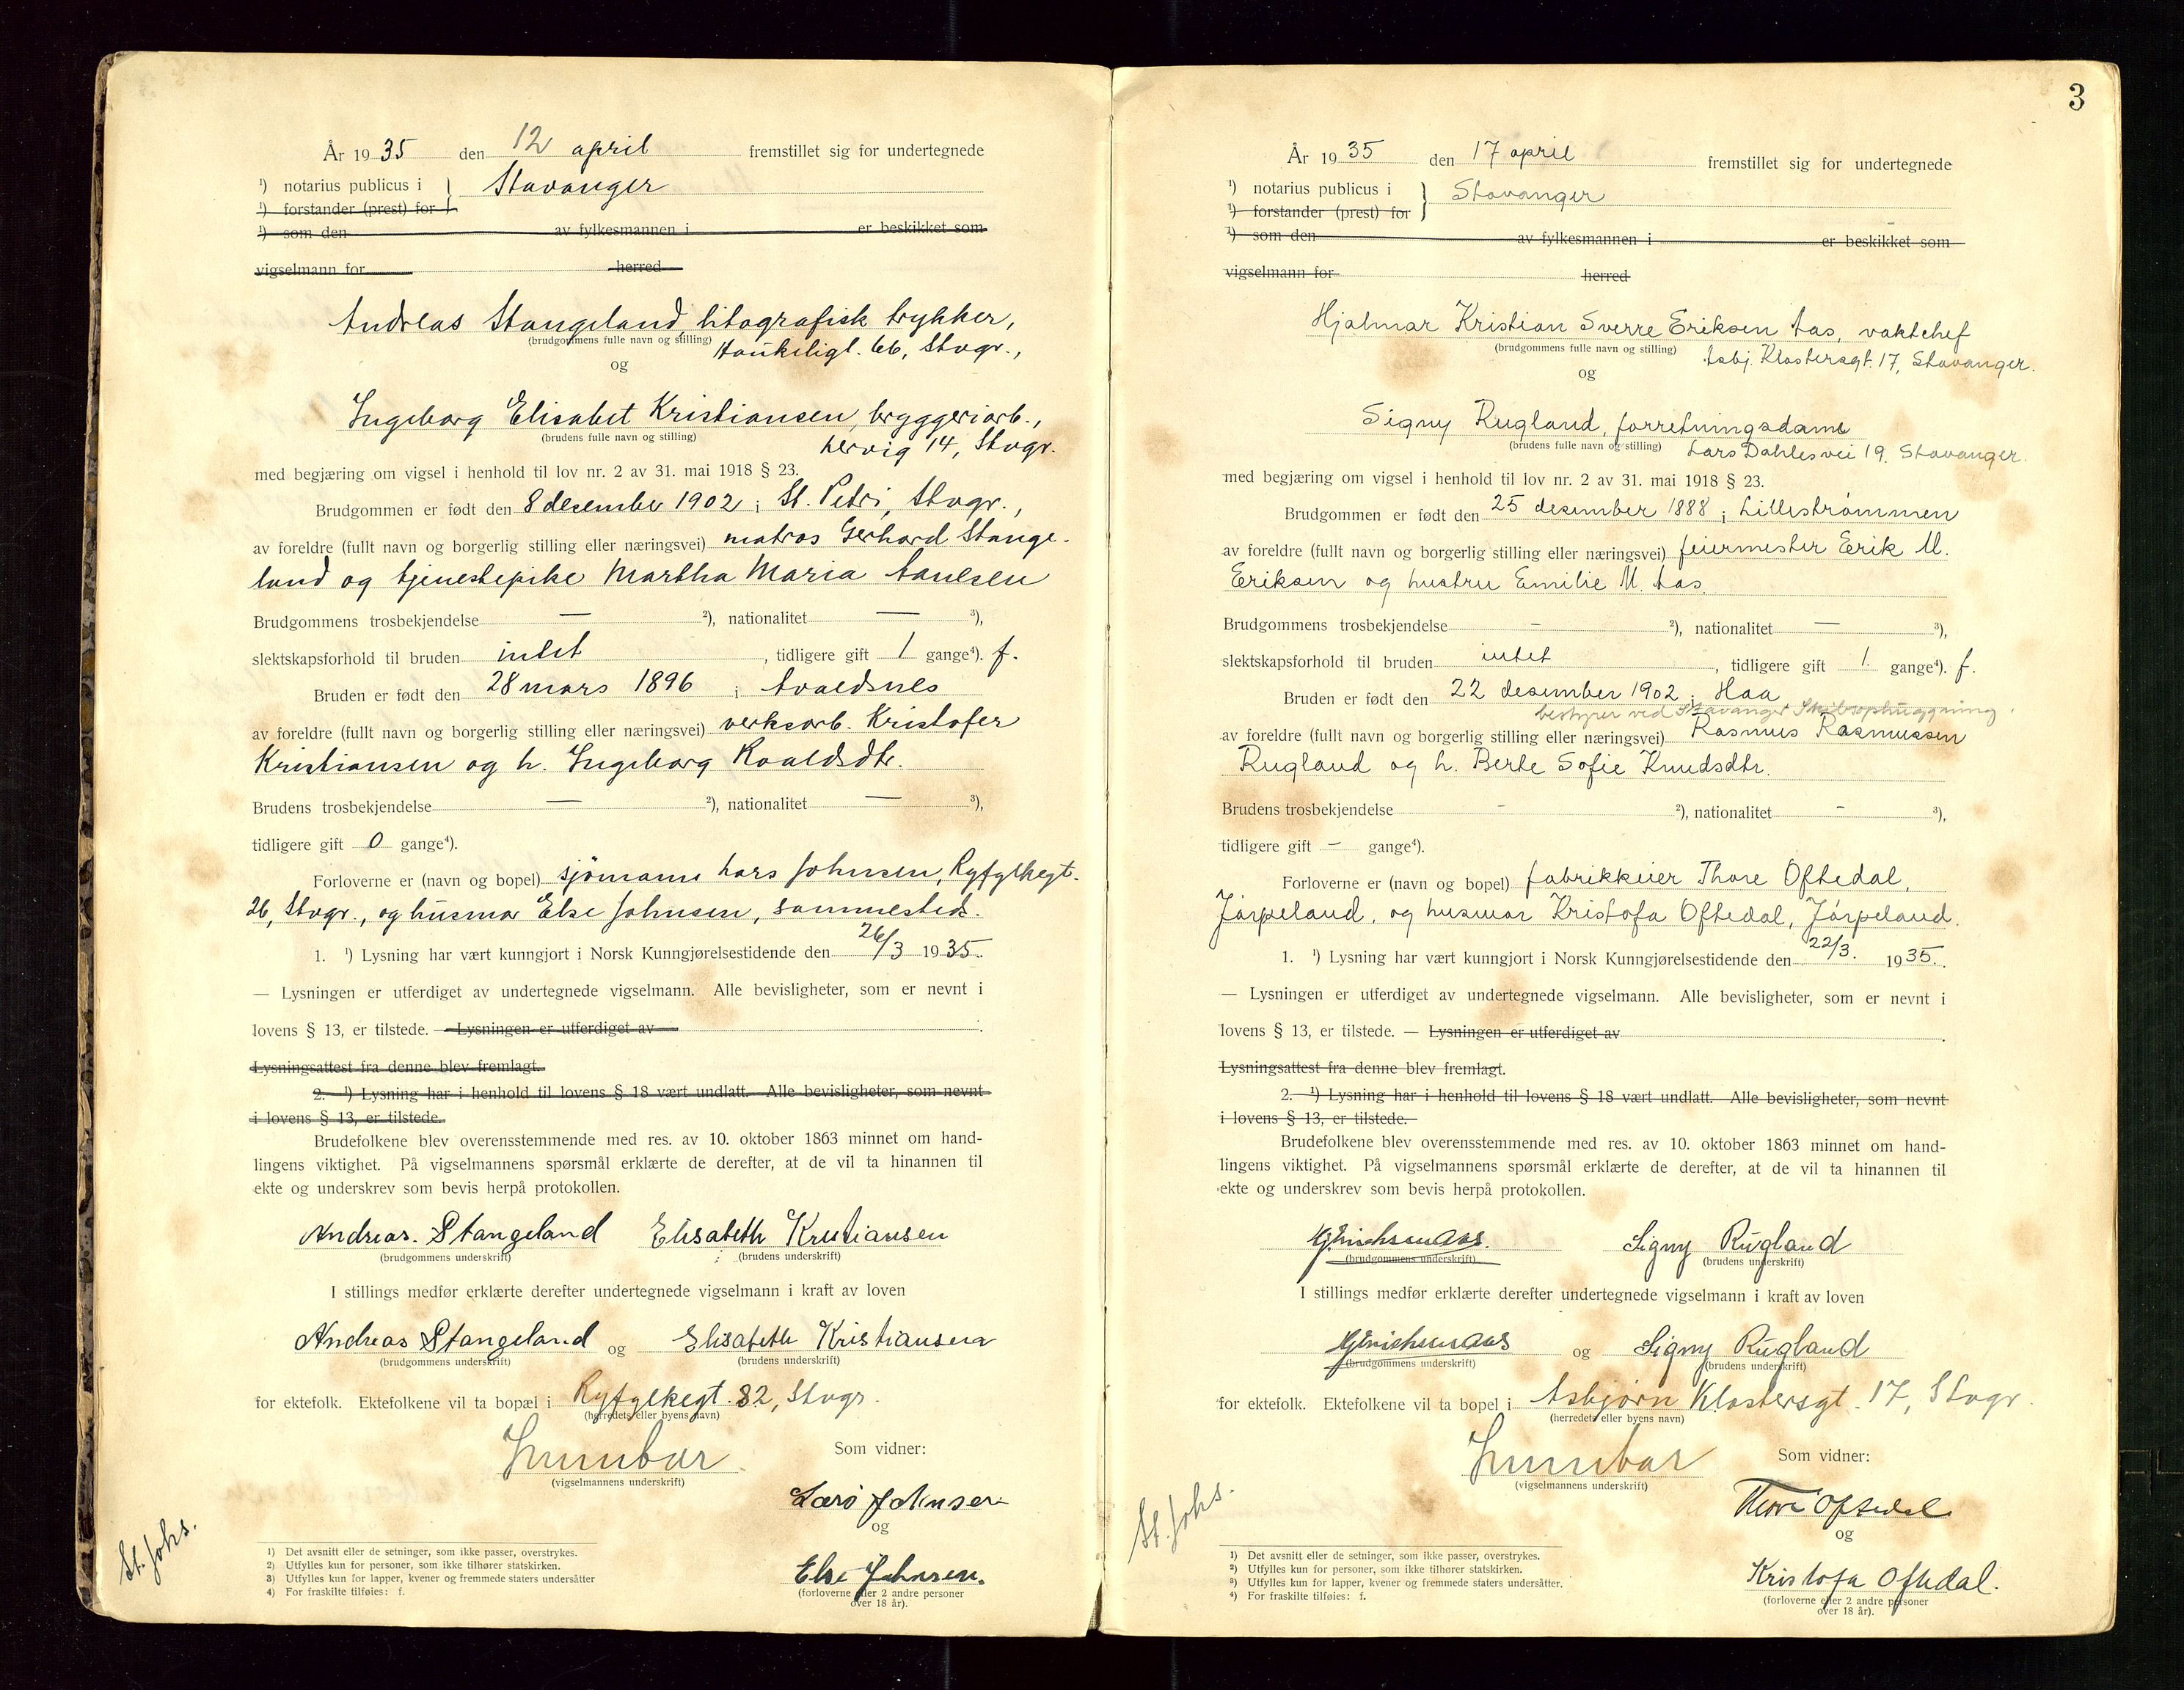 År 19 35 den 12 april fremstillet sig for undertegnede
¹) notarius publicus i } Stavanger
¹) forstander (prest) for
¹) som den av fylkesmannen i er beskikket som
vigselmann for herred
Andreas Stangeland, litografisk trykker,
(brudgommens fulle navn og stilling) Haukeligt. 66, Stvgr.,
og
Ingeborg Elisabet Kristiansen, bryggeriarb.,
(brudens fulle navn og stilling) Lervig 14, Stvgr.
med begjæring om vigsel i henhold til lov nr. 2 av 31. mai 1918 § 23.
Brudgommen er født den 8 desember 1902 i St. Petri, Stvgr.,
av foreldre (fullt navn og borgerlig stilling eller næringsvei) matros Gerhard Stange-
land og tjenestepike Martha Maria Paulsen
Brudgommens trosbekjendelse — ²), nationalitet — ³),
slektskapsforhold til bruden intet, tidligere gift 1 gange⁴). f.
Bruden er født den 28 mars 1896 i Avaldsnes
av foreldre (fullt navn og borgerlig stilling eller næringsvei) verksarb. Kristofer
Kristiansen og h. Ingeborg Roaldsdtr.
Brudens trosbekjendelse — ²), nationalitet — ³),
tidligere gift 0 gange⁴).
Forloverne er (navn og bopel) sjömann Lars Johnsen, Ryfylkegt.
26, Stvgr., og husmor Else Johnsen, sammesteds.
1. ¹) Lysning har vært kunngjort i Norsk Kunngjørelsestidende den 26/3 1935.
— Lysningen er utferdiget av undertegnede vigselmann. Alle bevisligheter, som er nevnt i
lovens § 13, er tilstede. — Lysningen er utferdiget av .
Lysningsattest fra denne blev fremlagt.
2. ¹) Lysning har i henhold til lovens § 18 vært undlatt. Alle bevisligheter, som nevnt
i lovens § 13, er tilstede.
Brudefolkene blev overensstemmende med res. av 10. oktober 1863 minnet om hand-
lingens viktighet. På vigselmannens spørsmål erklærte de derefter, at de vil ta hinannen til
ekte og underskrev som bevis herpå protokollen.
Andreas. Stangeland Elisabeth Kristiansen
(brudgommens underskrift) (brudens underskrift)
I stillings medfør erklærte derefter undertegnede vigselmann i kraft av loven
Andreas Stangeland og Elisabeth Kristiansen
(brudgommens underskrift) (brudens underskrift)
for ektefolk. Ektefolkene vil ta bopæl i Ryfylkegt. 82, Stvgr.
(herredets eller byens navn)
Som vidner:
(vigselmannens underskrift)
Lars Johnsen
og
Else Johnsen.
(forloverne eller 2 andre personer
over 18 år).
St. Johs.
1) Det avsnitt eller de setninger, som ikke passer, overstrykes.
2) Utfylles kun for personer, som ikke tilhører statskirken.
3) Utfylles kun for lapper, kvener og fremmede staters undersåtter
4) For fraskilte tilføies: f.
3
År 19 35 den 17 april fremstillet sig for undertegnede
¹) notarius publicus i } Stavanger
¹) forstander (prest) for
¹) som den av fylkesmannen i er beskikket som
vigselmann for herred
Hjalmar Kristian Sverre Eriksen Aas, vaktchef
(brudgommens fulle navn og stilling) Asbj. Klostersgt. 17, Stavanger.
og
Signy Rugland, forretningsdame
(brudens fulle navn og stilling) Lars Dahles vei 19. Stavanger.
med begjæring om vigsel i henhold til lov nr. 2 av 31. mai 1918 § 23.
Brudgommen er født den 25 desember 1888 i Lillestrømmen
av foreldre (fullt navn og borgerlig stilling eller næringsvei) feiermester Erik M.
Eriksen og hustru Emilie M. Aas.
Brudgommens trosbekjendelse – ²), nationalitet — ³),
slektskapsforhold til bruden intet, tidligere gift 1. gange⁴). f.
Bruden er født den 22 desember 1902 i Haa
bestyrer ved Stavanger Skibsophugging,
av foreldre (fullt navn og borgerlig stilling eller næringsvei) Rasmus Rasmussen
Rugland og h. Berte Sofie Knudsdtr.
Brudens trosbekjendelse – ²), nationalitet – ³),
tidligere gift – gange⁴).
Forloverne er (navn og bopel) fabrikkeier Thore Oftedal,
Jörpeland, og husmor Kristofa Oftedal, Jörpeland.
1. ¹) Lysning har vært kunngjort i Norsk Kunngjørelsestidende den 22/3. 1935.
— Lysningen er utferdiget av undertegnede vigselmann. Alle bevisligheter, som er nevnt i
lovens § 13, er tilstede. — Lysningen er utferdiget av .
Lysningsattest fra denne blev fremlagt.
2. ¹) Lysning har i henhold til lovens § 18 vært undlatt. Alle bevisligheter, som nevnt
i lovens § 13, er tilstede.
Brudefolkene blev overensstemmende med res. av 10. oktober 1863 minnet om hand-
lingens viktighet. På vigselmannens spørsmål erklærte de derefter, at de vil ta hinannen til
ekte og underskrev som bevis herpå protokollen.
Signy Rugland
(brudgommens underskrift) (brudens underskrift)
I stillings medfør erklærte derefter undertegnede vigselmann i kraft av loven
og Signy Rugland
(brudgommens underskrift) (brudens underskrift)
for ektefolk. Ektefolkene vil ta bopel i Asbjørn Klostersgt. 17, Stvgr.
(herredets eller byens navn)
Som vidner:
(vigselmannens underskrift)
Thore Oftedal
og
Kristofa Oftedal.
(forloverne eller 2 andre personer
over 18 år).
St. Johs.
1) Det avsnitt eller de setninger, som ikke passer, overstrykes.
2) Utfylles kun for personer, som ikke tilhører statskirken.
3) Utfylles kun for lapper, kvener og fremmede staters undersåtter.
4) For fraskilte tilføies: f.